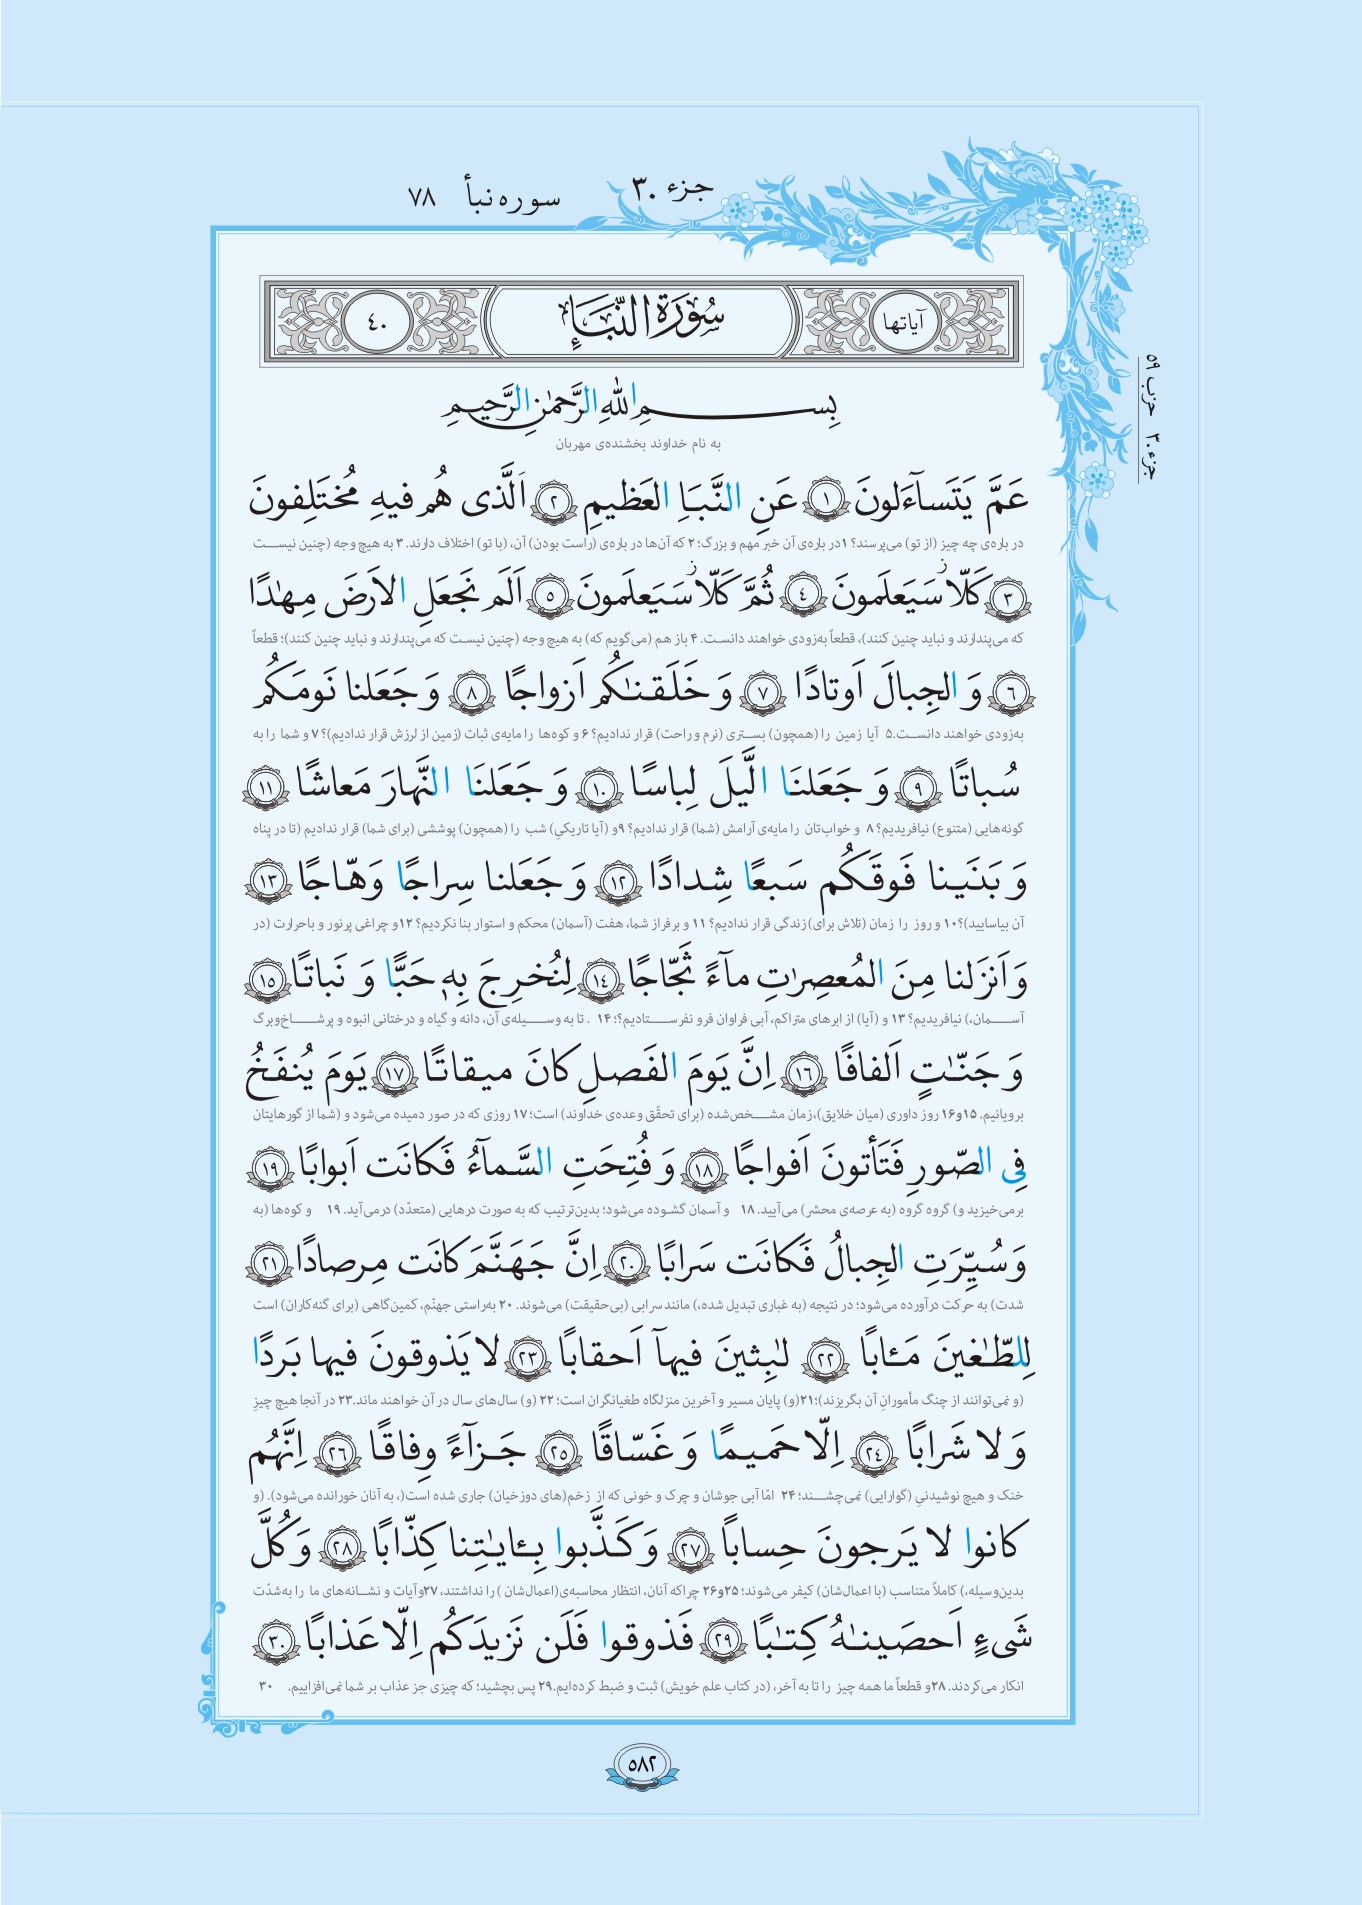 جزء ۳۰
سوره نبأ ۷۸
جزء ۳۰ حزب ۵۹
آیاتها
سُورَةُ النَّبَإِ
٤٠
بِسـمِ اللّٰهِ الرَّحمٰنِ الرَّحیمِ
به نام خداوند بخشنده‌ی مهربان
عَمَّ یَتَسآءَلونَ ١ عَنِ النَّبَاِ العَظیمِ ٢ اَلَّذی هُم فیهِ مُختَلِفونَ
در باره‌ی چه چیز (از تو) می‌پرسند؟ ۱در باره‌ی آن خبر مهم و بزرگ؛ ۲ که آن‌ها در باره‌ی (راست بودن) آن، (با تو) اختلاف دارند. ۳ به هیچ وجه (چنین نیست
٣ کَلّا ز سَیَعلَمونَ ٤ ثُمَّ کَلّا ز سَیَعلَمونَ ٥ اَلَم نَجعَلِ الاَرضَ مِهٰدًا
که می‌پندارند و نباید چنین کنند)، قطعاً به‌زودی خواهند دانست. ۴ باز هم (می‌گویم که) به هیچ وجه (چنین نیست که می‌پندارند و نباید چنین کنند)؛ قطعاً
٦ وَ الجِبالَ اَوتادًا ٧ وَ خَلَقنٰکُم اَزواجًا ٨ وَ جَعَلنا نَومَکُم
به‌زودی خواهند دانست.۵ آیا زمین را (همچون) بستری (نرم و راحت) قرار ندادیم؟ ۶ و کوه‌ها را مایه‌ی ثبات (زمین از لرزش قرار ندادیم)؟ ۷ و شما را به
سُباتًا ٩ وَ جَعَلنَا الَّیلَ لِباسًا ١٠ وَ جَعَلنَا النَّهارَ مَعاشًا ١١
گونه‌هایی (متنوع) نیافریدیم؟ ۸ و خواب‌تان را مایه‌ی آرامش (شما) قرار ندادیم؟ ۹و (آیا تاریکیِ) شب را (همچون) پوششی (برای شما) قرار ندادیم (تا در پناه
وَ بَنَینا فَوقَکُم سَبعًا شِدادًا ١٢ وَ جَعَلنا سِراجًا وَهّاجًا ١٣
آن بیاسایید)؟۱۰ و روز را زمان (تلاش برای) زندگی قرار ندادیم؟ ۱۱ و برفراز شما، هفت (آسمان) محکم و استوار بنا نکردیم؟ ۱۲و چراغی پرنور و باحرارت (در
وَ اَنزَلنا مِنَ المُعصِرٰتِ مآءً ثَجّاجًا ١٤ لِنُخرِجَ بِهٖ حَبًّا وَ نَباتًا ١٥
آسمان،) نیافریدیم؟ ۱۳ و (آیا) از ابرهای متراکم، آبی فراوان فرو نفرستادیم؟؛ ۱۴ . تا به وسیله‌ی آن، دانه و گیاه و درختانی انبوه و پرشاخ‌وبرگ
وَ جَنّٰتٍ اَلفافًا ١٦ اِنَّ یَومَ الفَصلِ کانَ میقاتًا ١٧ یَومَ یُنفَخُ
برویانیم. ۱۵و۱۶ روز داوری (میان خلایق)،زمان مشخص‌شده (برای تحقّق وعده‌ی خداوند) است؛ ۱۷ روزی که در صور دمیده می‌شود و (شما از گورهایتان
فِی الصّورِ فَتَأتونَ اَفواجًا ١٨ وَ فُتِحَتِ السَّمآءُ فَکانَت اَبوابًا ١٩
برمی‌خیزید و) گروه گروه (به عرصه‌ی محشر) می‌آیید. ۱۸ و آسمان گشوده می‌شود؛ بدین‌ترتیب که به صورت درهایی (متعدّد) درمی‌آید. ۱۹ و کوه‌ها (به
وَ سُیِّرَتِ الجِبالُ فَکانَت سَرابًا ٢٠ اِنَّ جَهَنَّمَ کانَت مِرصادًا ٢١
شدت) به حرکت درآورده می‌شود؛ در نتیجه (به غباری تبدیل شده،) مانند سرابی (بی‌حقیقت) می‌شوند. ۲۰ به‌راستی جهنّم، کمین‌گاهی (برای گنه‌کاران) است
لِلطّٰغینَ مَـٔابًا ٢٢ لٰبِثینَ فیهآ اَحقابًا ٢٣ لا یَذوقونَ فیها بَردًا
(و نمی‌توانند از چنگ مأمورانِ آن بگریزند)؛۲۱(و) پایان مسیر و آخرین منزلگاه طغیانگران است؛ ۲۲ (و) سال‌های سال در آن خواهند ماند.۲۳ در آنجا هیچ چیزِ
وَ لا شَرابًا ٢٤ اِلّا حَمیمًا وَ غَسّاقًا ٢٥ جَزآءً وِفاقًا ٢٦ اِنَّهُم
خنک و هیچ نوشیدنیِ (گوارایی) نمی‌چشند؛ ۲۴ امّا آبی جوشان و چرک و خونی که از زخم(های دوزخیان) جاری شده است(، به آنان خورانده می‌شود). (و
کانوا لا یَرجونَ حِسابًا ٢٧ وَ کَذَّبوا بِـٔایٰتِنا کِذّابًا ٢٨ وَ کُلَّ
بدین‌وسیله،) کاملاً متناسب (با اعمال‌شان) کیفر می‌شوند؛ ۲۵و۲۶ چراکه آنان، انتظار محاسبه‌ی(اعمال‌شان ) را نداشتند، ۲۷وآیات و نشانه‌های ما را به‌شدّت
شَیءٍ اَحصَینٰهُ کِتٰبًا ٢٩ فَذوقوا فَلَن نَزیدَکُم اِلّا عَذابًا ٣٠
انکار می‌کردند. ۲۸و قطعاً ما همه چیز را تا به آخر، (در کتاب علم خویش) ثبت و ضبط کرده‌ایم.۲۹ پس بچشید؛ که چیزی جز عذاب بر شما نمی‌افزاییم. ۳۰
۵۸۲